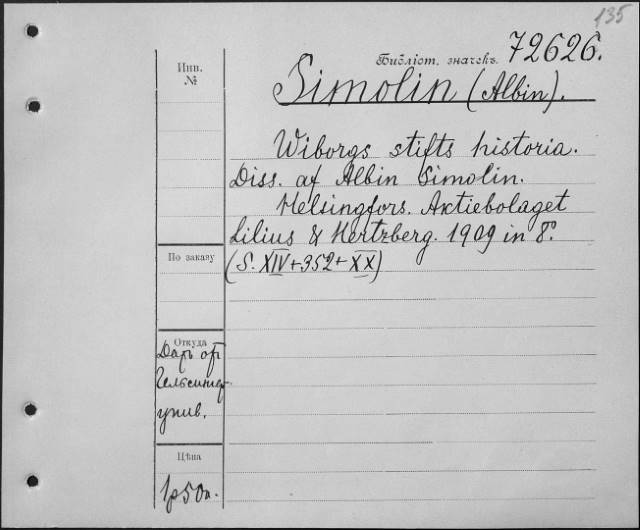 135
Библіот. значекъ. 72626.
Инв.
№
Simolin (Albin).
Wiborgs stifts historia.
Diss. af Albin Simolin.
Helsingfors. Aktiebolaget
Lilius & Hertzberg. 1909 in 8º.
(S. XIV+352+XX)
По заказу
Откуда
Даръ от
Гельсингф.
унив.
Цѣна
1р50к.